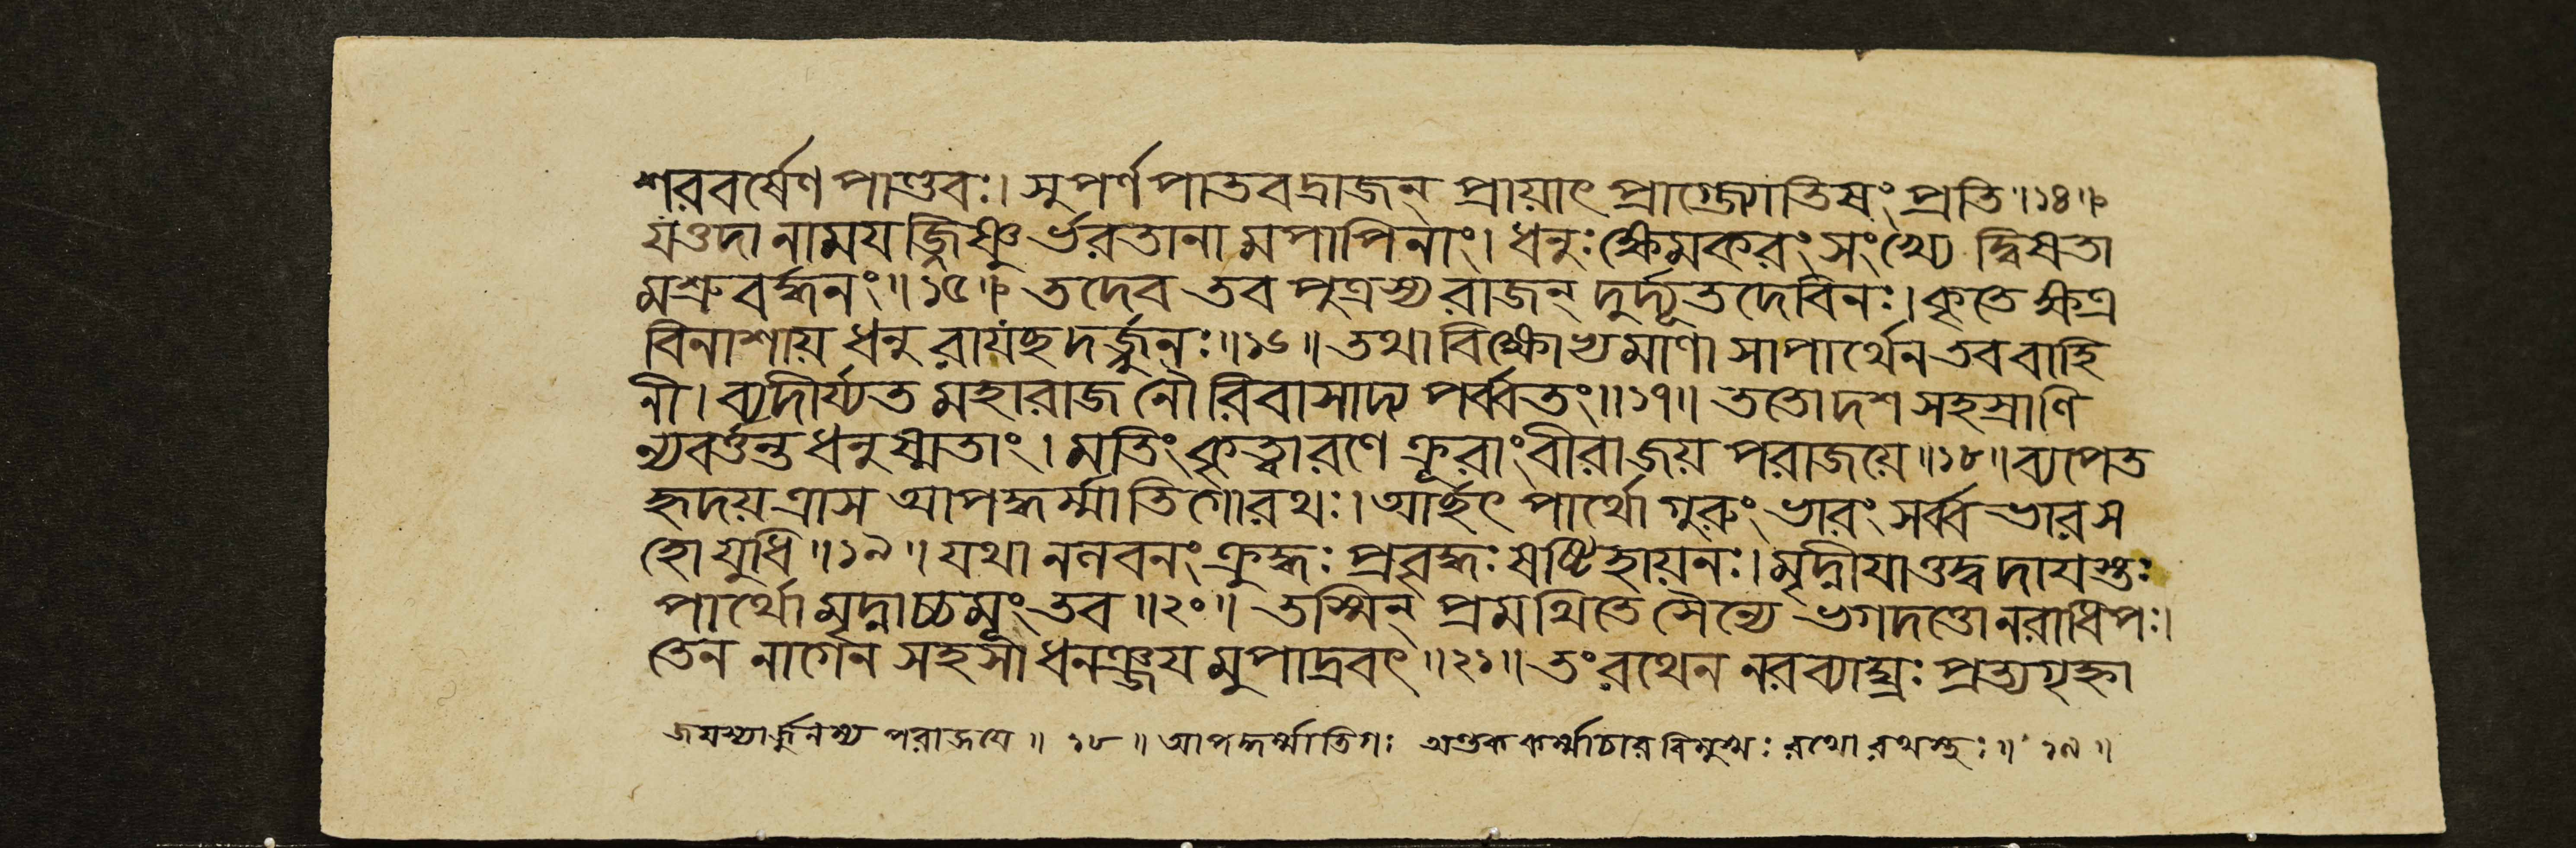 শরবর্ষেণ পাণ্ডবঃ। সুপর্ণপাতবদ্রাজন্ প্রায়াৎ প্রাগ্জ্যোতিষং প্রতি॥১৪॥
যত্তদানাময়জ্জিষ্ণুর্ভরতানামপাপিনাং। ধনুঃ ক্ষেমকরং সংখ্যে দ্বিষতা
মশ্রুবর্দ্ধনং॥১৫॥ তদেব তব পুত্রস্য রাজন্ দুর্দ্যূতদেবিনঃ। কৃতে ক্ষত্র
বিনাশায় ধনুরাযচ্ছদর্জ্জুনঃ॥১৬॥ তথা বিক্ষোভ্যমাণা সা পার্থেন তব বাহি
নী। ব্যদীর্য্যত মহারাজ নৌরিবাসাদ্য পর্ব্বতং॥১৭॥ ততো দশ সহস্রাণি
ন্যবর্ত্তন্ত ধনুষ্মতাং। মতিং কৃত্বা রণে ক্রূরাং বীরা জয় পরাজয়ে॥১৮॥ ব্যপেত
হৃদয়ত্রাস আপদ্ধর্ম্মাতিগো রথঃ। আর্ছৎ পার্থো গুরুং ভারং সর্ব্বভারস
হো যুধি॥১৯॥ যথা নলবনং ক্রুদ্ধঃ প্রবৃদ্ধঃ ষষ্টিহায়নঃ। মৃদ্নীযাত্তদ্বদাযস্তঃ
পার্থো মৃদ্নাচ্চমূং তব॥২০॥ তস্মিন্ প্রমথিতে সৈন্যে ভগদত্তো নরাধিপঃ।
তেন নাগেন সহসা ধনঞ্জয়মুপাদ্রবৎ॥২১॥ তং রথেন নরব্যাঘ্রঃ প্রত্যগৃহ্না
জয়স্যার্জুনস্য পরাজয়ে॥ ১৮॥ আপদ্ধর্ম্মাতিগঃ কর্ম্মাচার বিমুখঃ রথো রথস্থঃ॥ ১৯॥